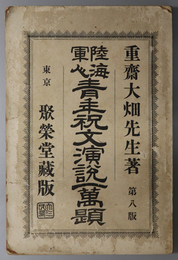 重齋大畑先生著
第八版
陸海軍人青年祝文演説一萬題
東京
聚榮堂藏版